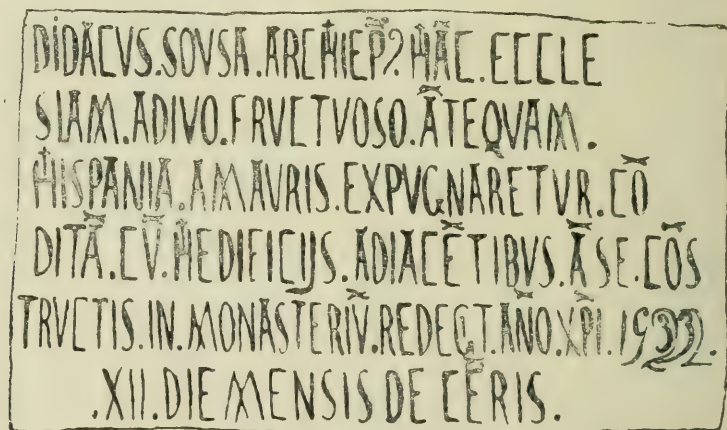 DIDACVS.SOVSA.ARCHIEP̄? HĀC.ECCLE
SIAM.ADIVO.FRVCTVOSO.ĀTEQVAM.
HISPANIA.AMAVRIS.EXPVGNARETVR.CŌ
DITĀ.CV̄.HEDIFICIJS.ADIACĒTIBVS.ĀSE.CŌS
TRVCTIS.IN.MONASTERIV̄.REDEGIT.AN̄O.XP̄I.1522.
.XII.DIE MENSIS DE CĒRIS.